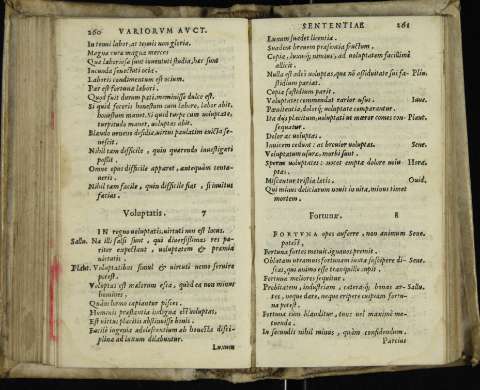 260 VARIORVM AVCT.
In tenui labor, at tenuis non gloria.
Magna cura magna merces
Quæ laboriosa sunt iuuentuti studia, hæc sunt
Iucunda senectuti otia.
Laboris condimentum est otium.
Par est fortuna labori.
Quod fuit durum pati, meminisse dulce est.
Si quid feceris honestum cum labore, labor abit,
honestum manet. Si quid turpe cum voluptate,
turpitudo manet, voluptas abit.
Blando omnes desidiæ, uirtus paulatim euicta senescit.
Nihil tam difficile, quin quærendo inuestigari
possit.
Omne opus difficile apparet, antequàm tentaueris.
Nihil tam facile, quin difficile fiat, si inuitus
facias.
Voluptatis. 7
IN regno uoluptatis, uirtuti non est locus.
Salu. Na illi falsi sunt, qui diuersissimas res pariter expectant, voluptatem & præmia
uirtutis.
Plaut. Voluptatibus simul & uirtuti nemo seruire
potest.
Voluptas est malorum esca, quòd ea non minus
homines,
Quàm hamo capiantur pisces.
Hominis præstantia indigna est uoluptas,
Est virtus placitis abstinuisse bonis.
Facile ingenia adolescentum ab honesta disciplina ad luxum dilabuntur.
Luxum
SENTENTIAE 261
Luxum suadet licentia.
Suadent breuem præsentia fructum.
Copia, luxuriæ nimia, ad voluptatem facillimè
allicit.
Nulla est adeò voluptas, quæ nõ assiduitate sui fa- Plin.
stidium pariat.
Copia fastidium parit.
Voluptates commendat rarior usus. Iuue.
Pœnitentia, dolorq; voluptate comparantur.
Ita dijs placitum, uoluptati ut mæror comes con- Plaut.
sequatur.
Dolor ac voluptas.
Inuicem cedunt: at breuior voluptas. Sene.
Voluptatum usura, morbi sunt.
Sperne voluptates: nocet empta dolore voluptas. Hora.
Miscentur tristia lætis. Ouid.
Qui minus deliciarum nouit in uita, minus timet
mortem.
Fortunæ. 8
FORTVNA opes auferre, non animum Sene.
potest.
Fortuna fortes metuit, ignauos premit.
Oblatam utramque fortunam inuita suscipere discas, quo animo esse tranquillè cupis.
Fortuna meliores sequitur.
Probitatem, industriam, cæterasq; bonas artes, Sallu.
neque dare, neque eripere cuipiam fortuna potest.
Fortuna cùm blanditur, tunc uel maximè metuenda.
In secundis nihil minus, quàm confidendum.
Parcius